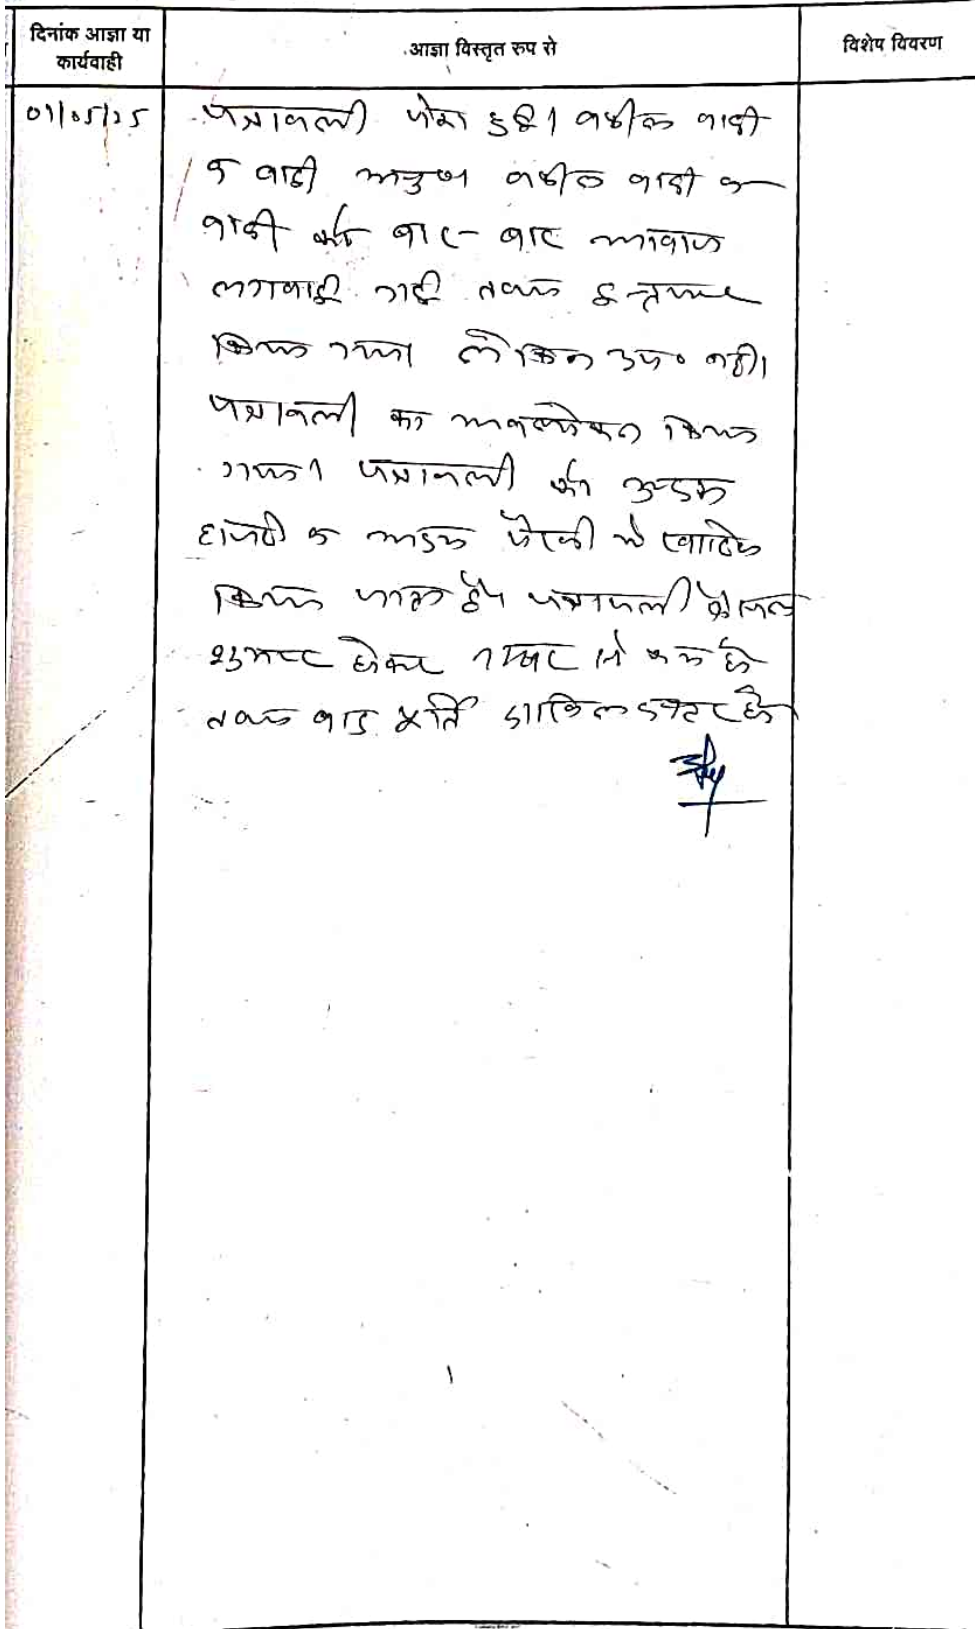 दिनांक आज्ञा या
कार्यवाही
आज्ञा विस्तृत रुप से
विशेष विवरण
01/05/25
पत्रावली पेश हुई। वकील वादी
व वादी अनुप० वकील वादी व
वादी को बार-बार आवाज
लगवाई गई तथा इन्तजार
किया गया लेकिन उप० नही।
पत्रावली का अवलोकन किया
गया। पत्रावली को अदम
हाजरी व अदम पैरवी मे खारिज
किया जाता है। पत्रावली फैसल
शुमार होकर नम्बर से कम हो
तथा बाद पूर्ति दाखिल दफ्तर हो